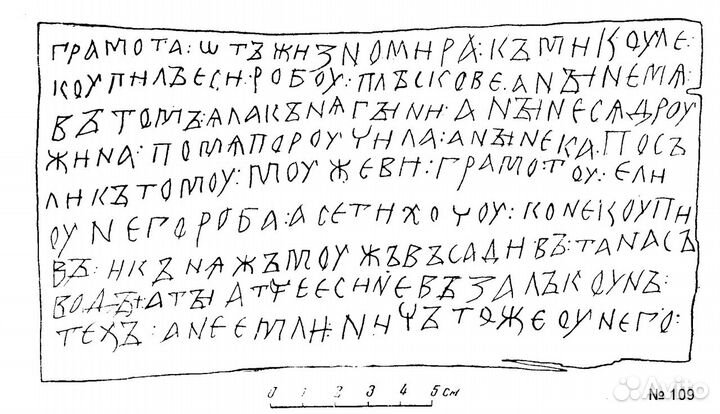 грамота:ѡтъжизномира:къмикоуле:
коупилъеси:робоу:плъскове:анꙑнемѧ:
вътомъ:алакънѧгꙑни:анꙑнесѧдроу
жина:помѧпороучила:анꙑнека:посъ
ликътомоу:моужеви:грамотоу:ели
оунегороба:асетихочоу:конекоупи
въ:икънѧжъмоужъвъсадивъ:танасъ
водꙑ:атꙑатчееси невъзалъкоунъ:
техъ:анеемли:ничътожеоунего:
0 1 2 3 4 5 см
№ 109
Avito